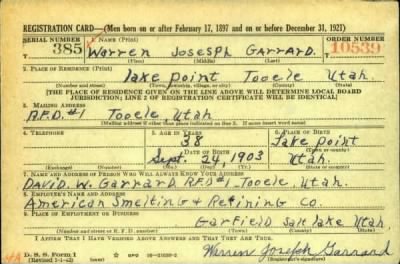 REGISTRATION CARD—(Men born on or after February 17, 1897 and on or before December 31, 1921)
SERIAL NUMBER 1. NAME (Print) ORDER NUMBER
T 385 Warren Josesph Garrard. T 10539
(First) (Middle) (Last)
2. PLACE OF RESIDENCE (Print)
lake point Tooele Utah.
(Number and street) (Town, township, village, or city) (County) (State)
[THE PLACE OF RESIDENCE GIVEN ON THE LINE ABOVE WILL DETERMINE LOCAL BOARD
JURISDICTION; LINE 2 OF REGISTRATION CERTIFICATE WILL BE IDENTICAL]
3. MAILING ADDRESS
R.F.D. #1 Tooele Utah
[Mailing address if other than place indicated on line 2. If same insert word same]
4. TELEPHONE 5. AGE IN YEARS 6. PLACE OF BIRTH
38 Lake point
DATE OF BIRTH
Sept. 24, 1903 Utah.
(Exchange) (Number) (Mo.) (Day) (Yr.) (Town or county) (State or country)
7. NAME AND ADDRESS OF PERSON WHO WILL ALWAYS KNOW YOUR ADDRESS
David. W. Garrard R.F.D #1, Tooele, Utah.
8. EMPLOYER'S NAME AND ADDRESS
American Smelting & Refining Co.
9. PLACE OF EMPLOYMENT OR BUSINESS
Garfield Salt lake Utah.
(Number and street or R. F. D. number) (Town) (County) (State)
I AFFIRM THAT I HAVE VERIFIED ABOVE ANSWERS AND THAT THEY ARE TRUE.
D. S. S. Form 1 GPO 16—21630-2 Warren Joseph Garrard
(Revised 1-1-42) (over) (Registrant's signature)